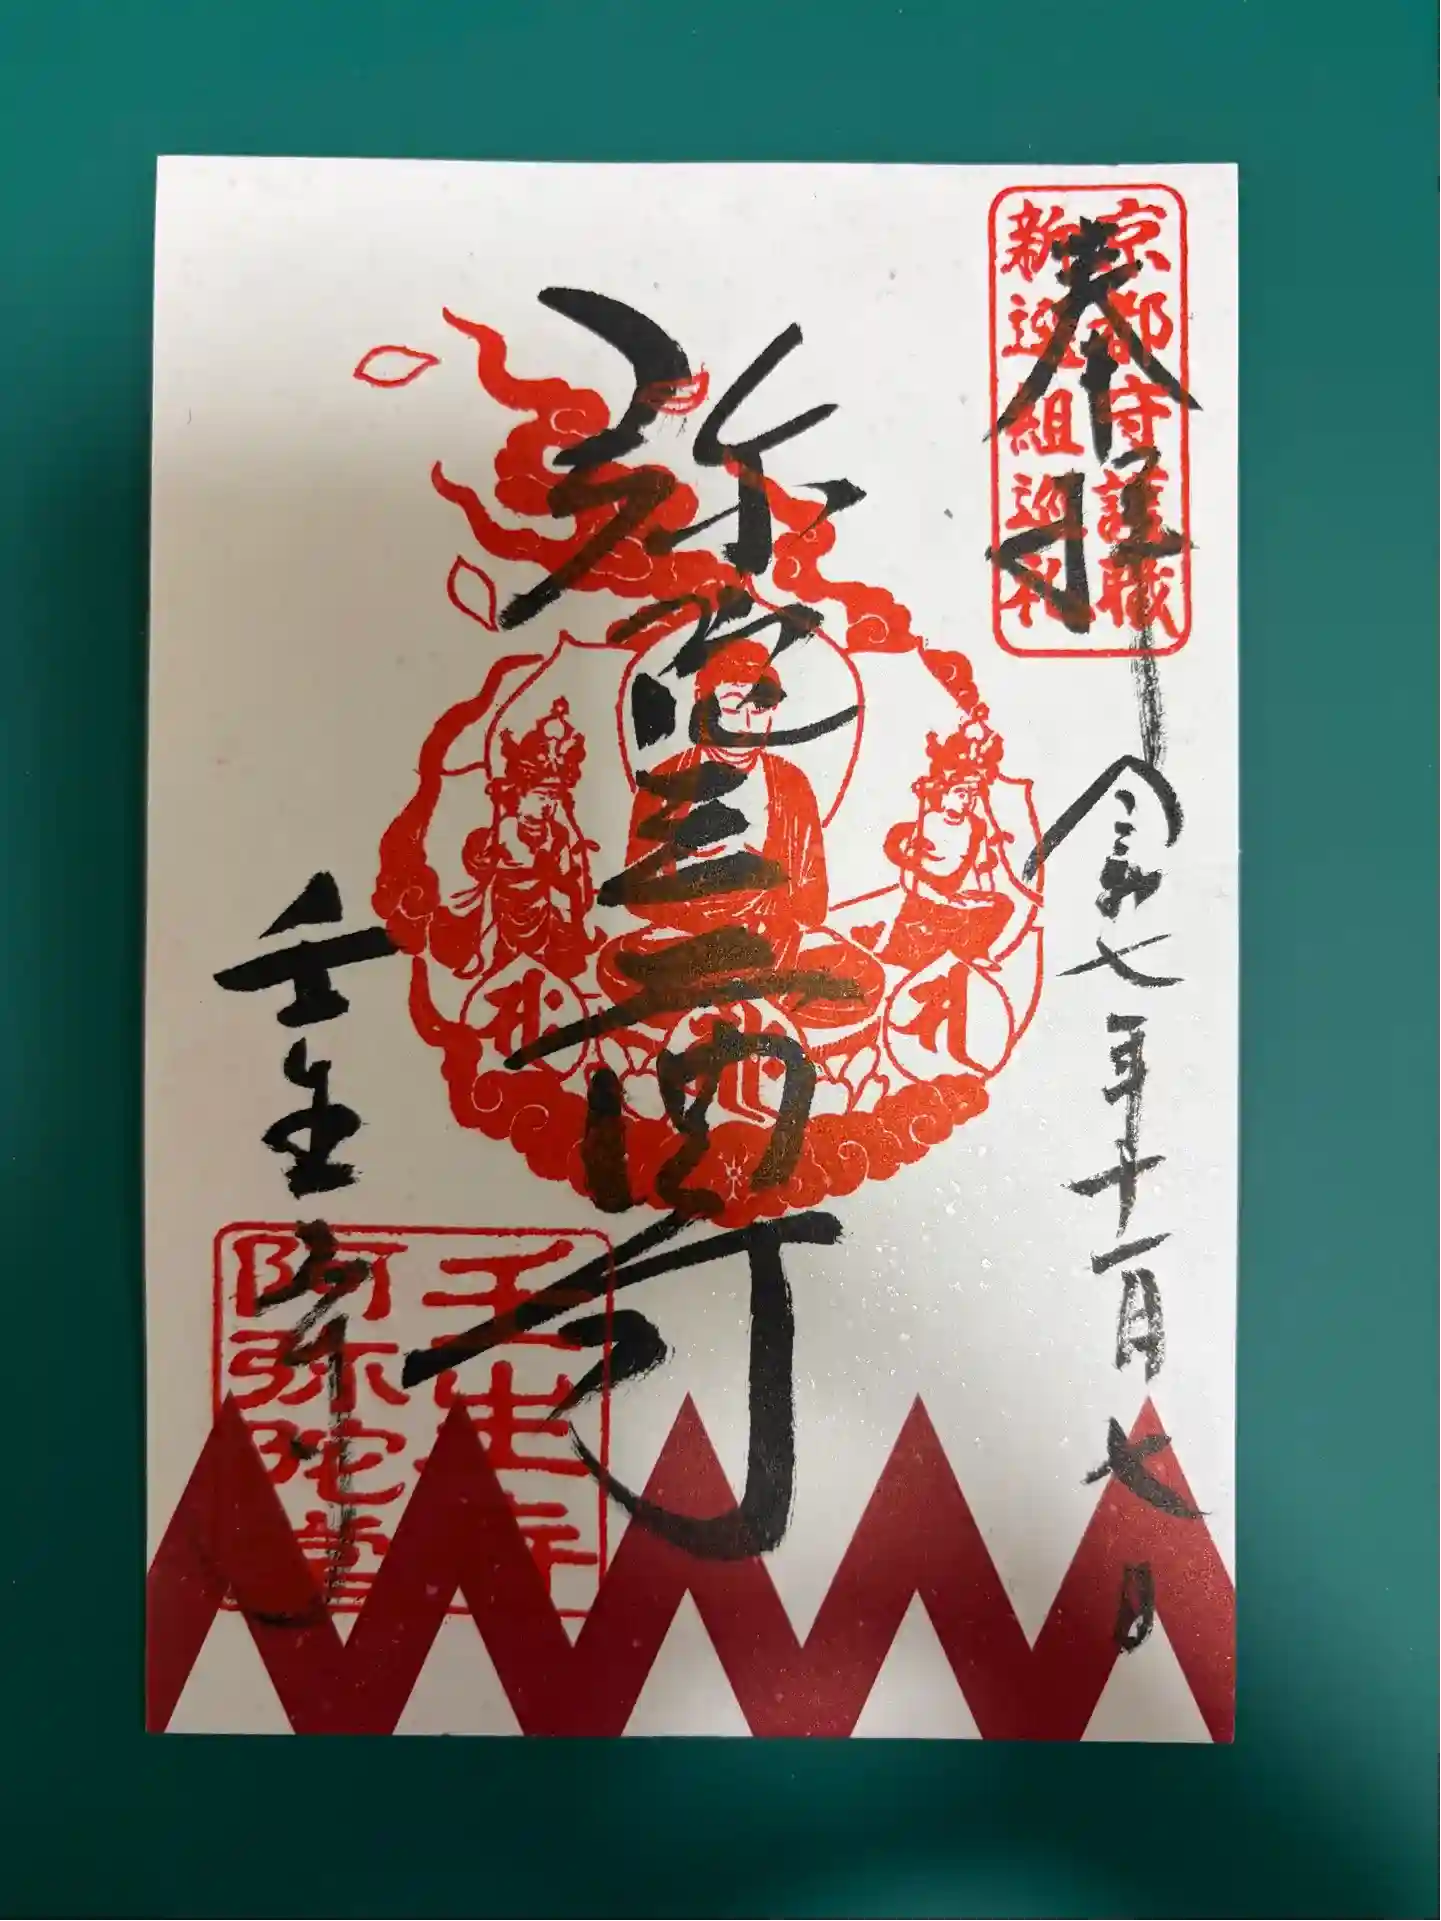 京都守護職
新選組巡礼
奉拝
令和七年十一月七日
弥陀三尊
壬生寺
壬生寺
阿弥陀堂